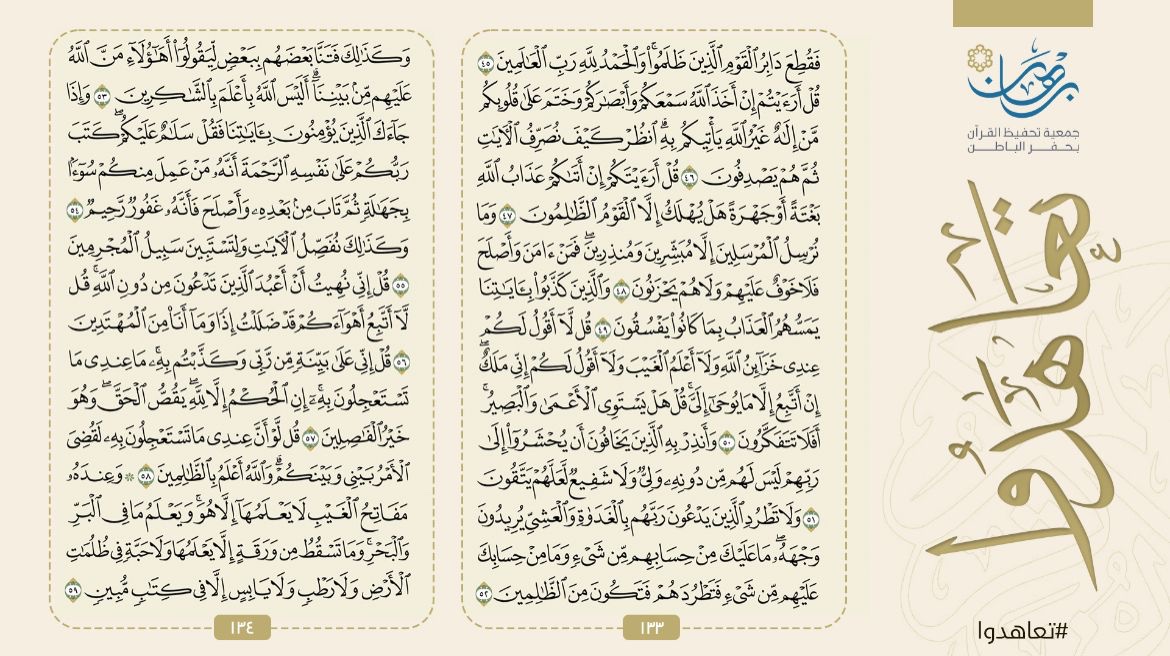 برهان
جمعية تحفيظ القرآن
بحفر الباطن
تعاهدوا
#تعاهدوا
فَقُطِعَ دَابِرُ الْقَوْمِ الَّذِينَ ظَلَمُوا۟ ۚ وَالْحَمْدُ لِلَّهِ رَبِّ الْعَالَمِينَ ٤٥
قُلْ أَرَءَيْتُمْ إِنْ أَخَذَ اللَّهُ سَمْعَكُمْ وَأَبْصَارَكُمْ وَخَتَمَ عَلَىٰ قُلُوبِكُم
مَّنْ إِلَٰهٌ غَيْرُ اللَّهِ يَأْتِيكُم بِهِ ۗ انظُرْ كَيْفَ نُصَرِّفُ الْآيَاتِ
ثُمَّ هُمْ يَصْدِفُونَ ٤٦ قُلْ أَرَءَيْتَكُمْ إِنْ أَتَاكُمْ عَذَابُ اللَّهِ
بَغْتَةً أَوْ جَهْرَةً هَلْ يُهْلَكُ إِلَّا الْقَوْمُ الظَّالِمُونَ ٤٧ وَمَا
نُرْسِلُ الْمُرْسَلِينَ إِلَّا مُبَشِّرِينَ وَمُنذِرِينَ ۖ فَمَنْ ءَامَنَ وَأَصْلَحَ
فَلَا خَوْفٌ عَلَيْهِمْ وَلَا هُمْ يَحْزَنُونَ ٤٨ وَالَّذِينَ كَذَّبُوا۟ بِـَٔايَاتِنَا
يَمَسُّهُمُ الْعَذَابُ بِمَا كَانُوا۟ يَفْسُقُونَ ٤٩ قُل لَّا أَقُولُ لَكُمْ
عِندِى خَزَائِنُ اللَّهِ وَلَا أَعْلَمُ الْغَيْبَ وَلَا أَقُولُ لَكُمْ إِنِّى مَلَكٌ ۖ
إِنْ أَتَّبِعُ إِلَّا مَا يُوحَىٰ إِلَىَّ ۚ قُلْ هَلْ يَسْتَوِى الْأَعْمَىٰ وَالْبَصِيرُ ۚ
أَفَلَا تَتَفَكَّرُونَ ٥٠ وَأَنذِرْ بِهِ الَّذِينَ يَخَافُونَ أَن يُحْشَرُوا۟ إِلَىٰ
رَبِّهِمْ لَيْسَ لَهُم مِّن دُونِهِۦ وَلِىٌّ وَلَا شَفِيعٌ لَّعَلَّهُمْ يَتَّقُونَ
٥١ وَلَا تَطْرُدِ الَّذِينَ يَدْعُونَ رَبَّهُم بِالْغَدَوٰةِ وَالْعَشِىِّ يُرِيدُونَ
وَجْهَهُ ۖ مَا عَلَيْكَ مِنْ حِسَابِهِم مِّن شَىْءٍ وَمَا مِنْ حِسَابِكَ
عَلَيْهِم مِّن شَىْءٍ فَتَطْرُدَهُمْ فَتَكُونَ مِنَ الظَّالِمِينَ ٥٢
١٣٣
وَكَذَٰلِكَ فَتَنَّا بَعْضَهُم بِبَعْضٍ لِّيَقُولُوا۟ أَهَٰؤُلَاءِ مَنَّ اللَّهُ
عَلَيْهِم مِّن بَيْنِنَا ۗ أَلَيْسَ اللَّهُ بِأَعْلَمَ بِالشَّاكِرِينَ ٥٣ وَإِذَا
جَاءَكَ الَّذِينَ يُؤْمِنُونَ بِـَٔايَاتِنَا فَقُلْ سَلَامٌ عَلَيْكُمْ ۖ كَتَبَ
رَبُّكُمْ عَلَىٰ نَفْسِهِ الرَّحْمَةَ ۖ أَنَّهُۥ مَنْ عَمِلَ مِنكُمْ سُوءًا
بِجَهَالَةٍ ثُمَّ تَابَ مِنۢ بَعْدِهِۦ وَأَصْلَحَ فَأَنَّهُۥ غَفُورٌ رَّحِيمٌ ٥٤
وَكَذَٰلِكَ نُفَصِّلُ الْآيَاتِ وَلِتَسْتَبِينَ سَبِيلُ الْمُجْرِمِينَ
٥٥ قُلْ إِنِّى نُهِيتُ أَنْ أَعْبُدَ الَّذِينَ تَدْعُونَ مِن دُونِ اللَّهِ ۚ قُل
لَّا أَتَّبِعُ أَهْوَاءَكُمْ ۙ قَدْ ضَلَلْتُ إِذًا وَمَا أَنَا۠ مِنَ الْمُهْتَدِينَ
٥٦ قُلْ إِنِّى عَلَىٰ بَيِّنَةٍ مِّن رَّبِّى وَكَذَّبْتُم بِهِۦ ۚ مَا عِندِى مَا
تَسْتَعْجِلُونَ بِهِۦ ۚ إِنِ الْحُكْمُ إِلَّا لِلَّهِ ۖ يَقُصُّ الْحَقَّ ۖ وَهُوَ
خَيْرُ الْفَاصِلِينَ ٥٧ قُل لَّوْ أَنَّ عِندِى مَا تَسْتَعْجِلُونَ بِهِۦ لَقُضِىَ
الْأَمْرُ بَيْنِى وَبَيْنَكُمْ ۗ وَاللَّهُ أَعْلَمُ بِالظَّالِمِينَ ٥٨ ۞ وَعِندَهُۥ
مَفَاتِحُ الْغَيْبِ لَا يَعْلَمُهَا إِلَّا هُوَ ۚ وَيَعْلَمُ مَا فِى الْبَرِّ
وَالْبَحْرِ ۚ وَمَا تَسْقُطُ مِن وَرَقَةٍ إِلَّا يَعْلَمُهَا وَلَا حَبَّةٍ فِى ظُلُمَاتِ
الْأَرْضِ وَلَا رَطْبٍ وَلَا يَابِسٍ إِلَّا فِى كِتَابٍ مُّبِينٍ ٥٩
١٣٤